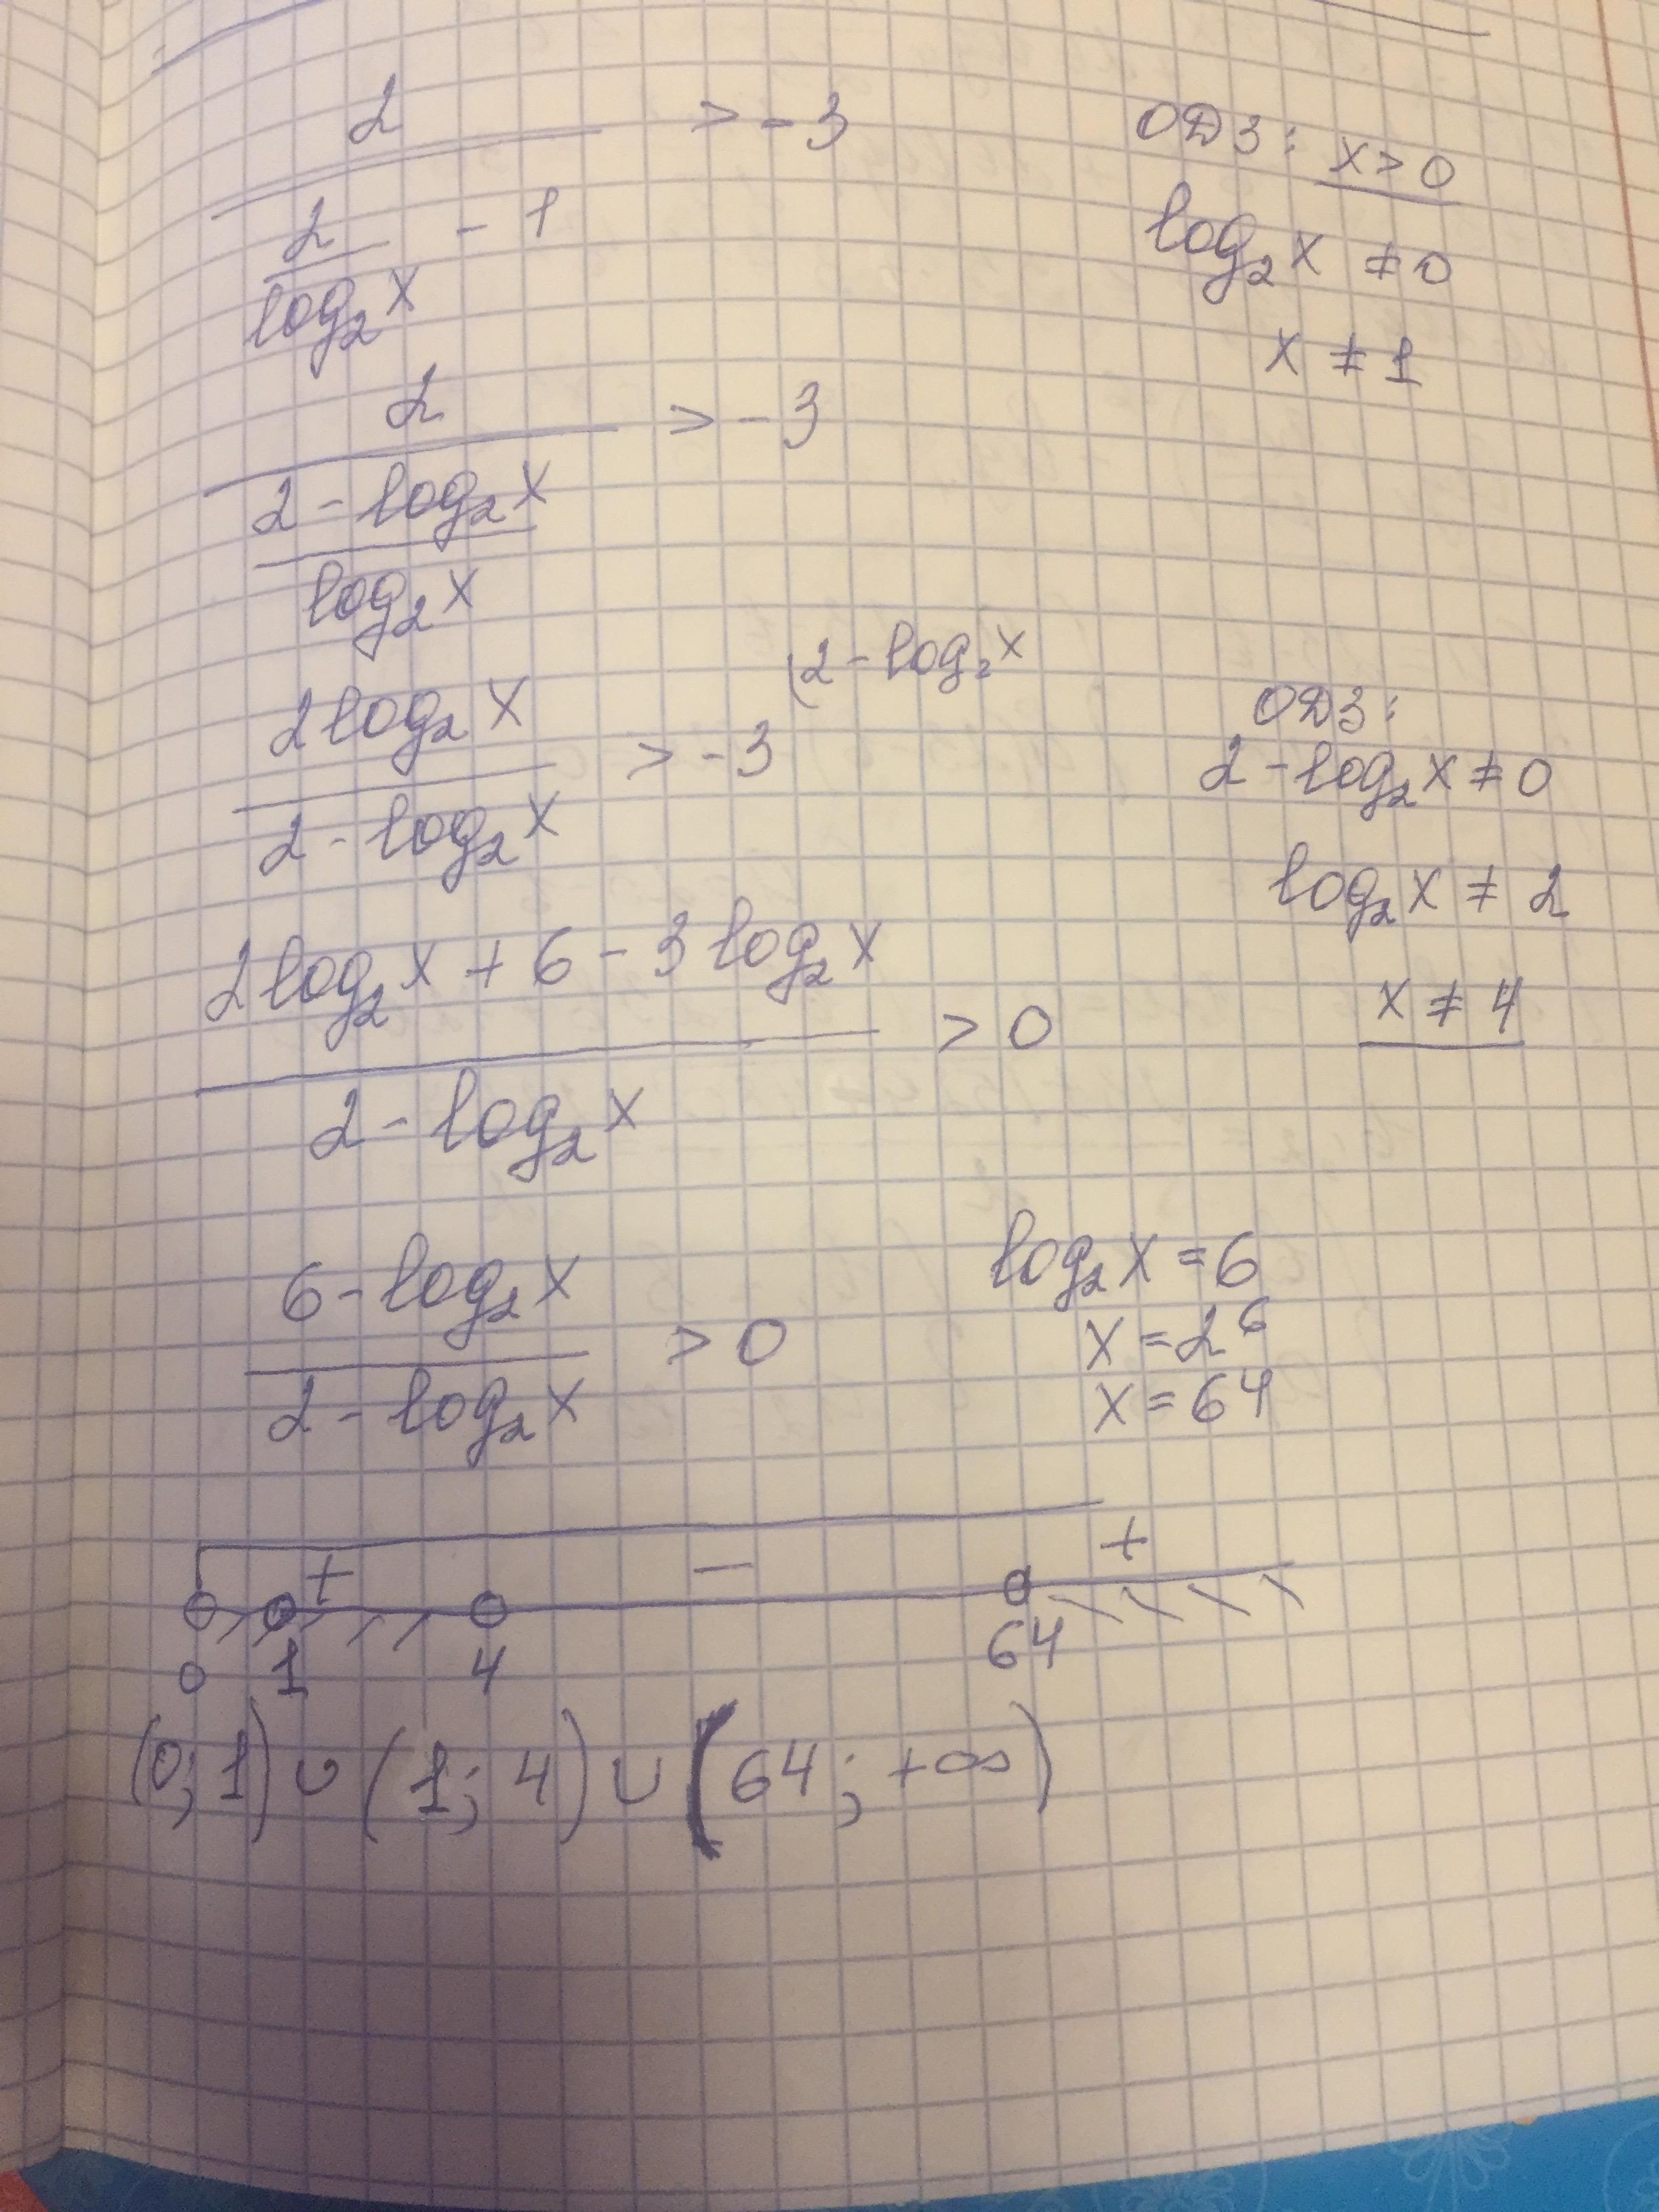 2 > -3
2 - 1
log₂x
ОДЗ: x > 0
log₂x ≠ 0
x ≠ 1
2 > -3
2 - log₂x
log₂x
2log₂x > -3 (2 - log₂x
2 - log₂x
ОДЗ:
2 - log₂x ≠ 0
log₂x ≠ 2
x ≠ 4
2log₂x + 6 - 3log₂x > 0
2 - log₂x
6 - log₂x > 0
2 - log₂x
log₂x = 6
x = 2⁶
x = 64
+ − +
0 1 4 64
(0; 1) ∪ (1; 4) ∪ (64; +∞)